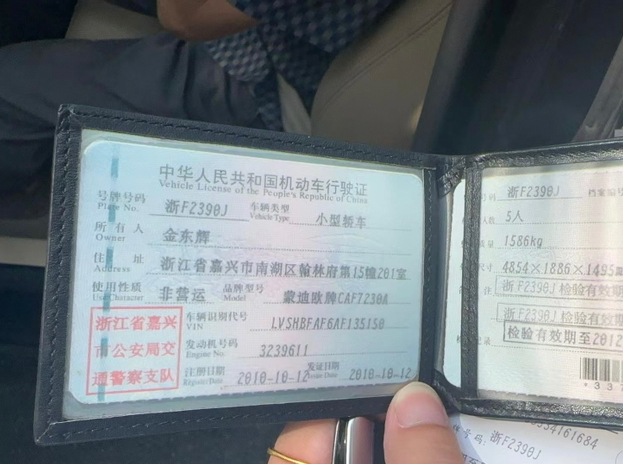 中华人民共和国机动车行驶证
Vehicle License of the People's Republic of China
号牌号码 浙F2390J 车辆类型 小型轿车
Plate No. Vehicle Type
所有人 金东辉
Owner
住址 浙江省嘉兴市南湖区翰林府第15幢201室
Address
使用性质 非营运 品牌型号 蒙迪欧牌CAF7230A
Use Character Model
浙江省嘉兴
市公安局交
通警察支队
车辆识别代号 LVSHBFAF6AF135150
VIN
发动机号码 3239611
Engine No.
注册日期 2010-10-12 发证日期 2010-10-12
Register Date Issue Date
号码 浙F2390J 档案编号
人数 5人
质量 1586kg
尺寸 4854×1886×1495
注 浙F2390J 检验有效期
浙F2390J 检验有效期
记录 检验有效期至2012
*33
334161684
号码: 浙F2390J